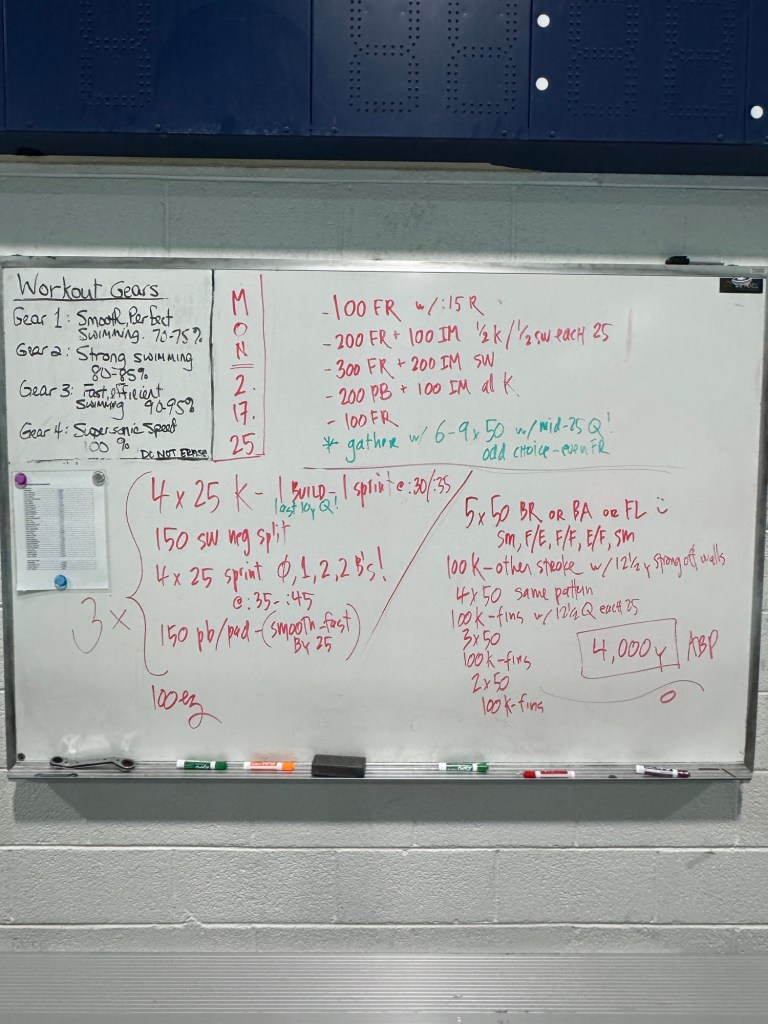 Workout Gears
Gear 1: Smooth, Perfect
SWIMMING. 70-75%
Gear 2: Strong SWIMMING
80-85%
Gear 3: Fast, efficient
SWIMMING 90-95%
Gear 4: Supersonic Speed
100 %
DO NOT ERASE
M
O
N
2.
17.
25
-100 FR w/:15 R
-200 FR + 100 IM ½ K/½ SW each 25
-300 FR + 200 IM SW
-200 PB + 100 IM all K
-100 FR
* gather w/ 6-9 x 50 w/ mid-25 Q!
odd choice-even FR
3x
4 x 25 K - 1 BUILD - 1 sprint @ :30/:35
last 10y Q!
150 sw neg split
4 x 25 sprint 0, 1, 2, 2 B's!
@ :35-:45
150 pb/pad - (smooth-fast
By 25)
100 ez
5 x 50 BR OR BA OR FL
sm, F/E, F/F, E/F, sm
100 K-other stroke w/ 12½ y strong off walls
4 x 50 same pattern
100 K-fins w/ 12½ Q each 25
3 x 50
100 K-fins
2 x 50
100 K-fins
4,000y ABP